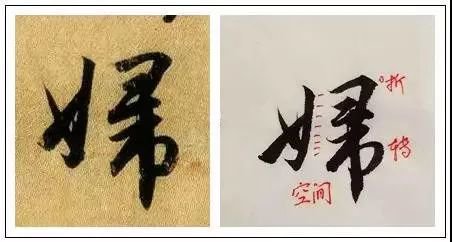 婦
婦
折
转
空间